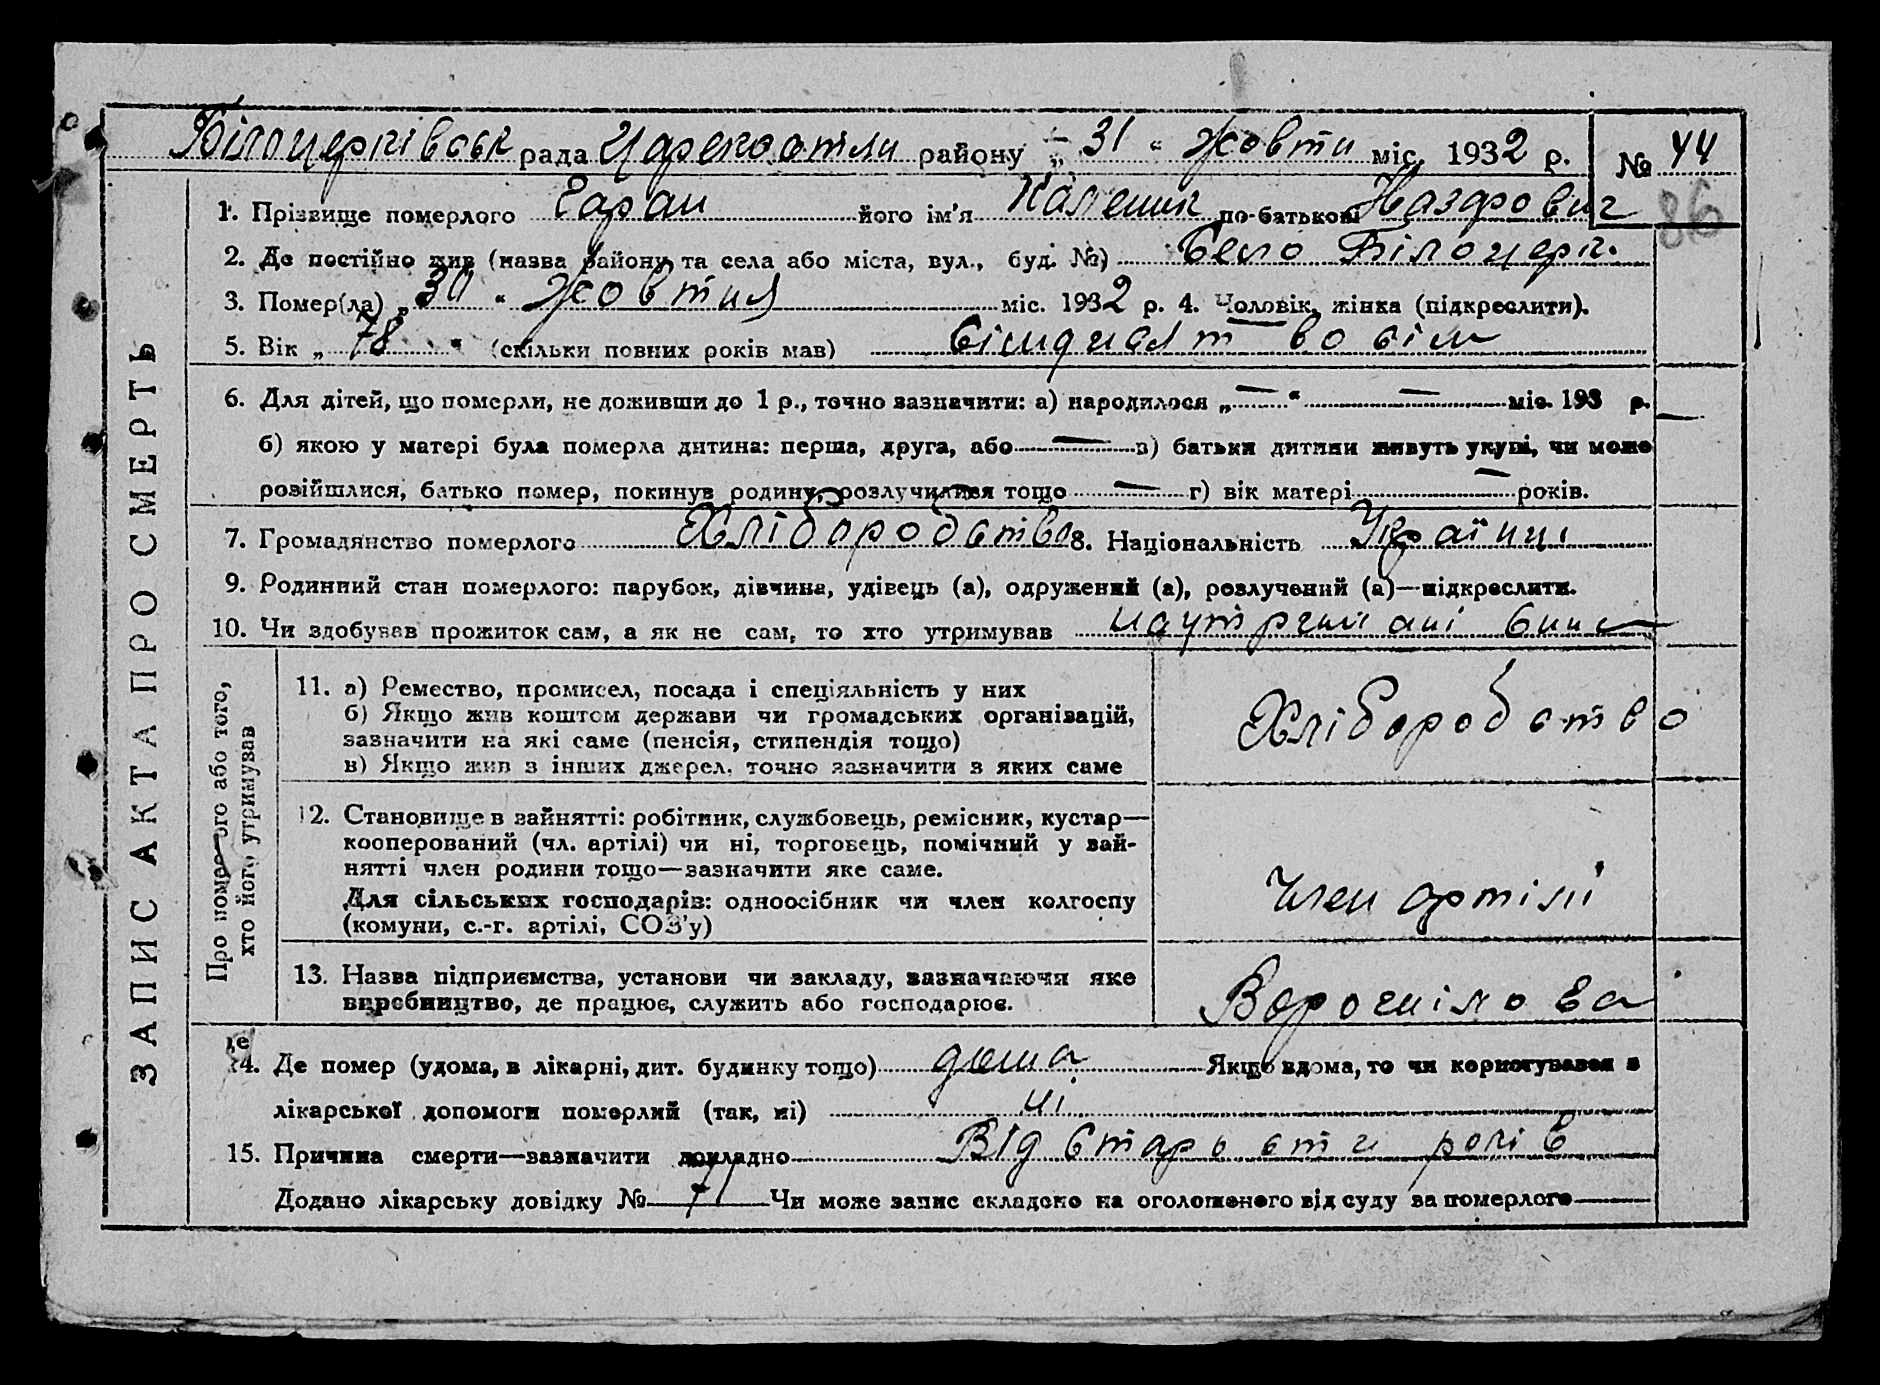 Білоцерківськ рада району „ 31 “ Жовтн міс. 1932 р. № 44
86
1. Прізвище померлого Гаран його ім’я Каленик по-батькові Назарович
2. Де постійно жив (назва району та села або міста, вул., буд. №) Село Білоцерк.
3. Помер(ла) „ 30 “ Жовтня міс. 1932 р. 4. Чоловік, жінка (підкреслити).
5. Вік „ 78 “ (скільки повних років мав) сімдисят восім
6. Для дітей, що померли, не доживши до 1 р., точно зазначити: а) народилося „ — “ — міс. 193 р.
б) якою у матері була померла дитина: перша, друга, або — в) батьки дитини живуть укупі, чи може
розійшлися, батько помер, покинув родину, розлучилися тощо — г) вік матері — років.
7. Громадянство померлого Хліборобство 8. Національність Українці
9. Родинний стан померлого: парубок, дівчина, удівець (а), одружений (а), розлучений (а)—підкреслити.
10. Чи здобував прожиток сам, а як не сам, то хто утримував
ЗАПИС АКТА ПРО СМЕРТЬ
Про померлого або того,
хто його утримував
11. а) Ремество, промисел, посада і спеціяльність у них
б) Якщо жив коштом держави чи громадських організацій,
зазначити на які саме (пенсія, стипендія тощо)
в) Якщо жив з інших джерел, точно зазначити з яких саме
Хліборобство
12. Становище в зайнятті: робітник, службовець, ремісник, кустар—
кооперований (чл. артілі) чи ні, торговець, помічний у зай-
нятті член родини тощо—зазначити яке саме.
Для сільських господарів: одноосібник чи член колгоспу
(комуни, с.-г. артілі, СОЗ’у)
Член артілі
13. Назва підприємства, установи чи закладу, зазначаючи яке
виробництво, де працює, служить або господарює.
Ворошілова
14. Де помер (удома, в лікарні, дит. будинку тощо) дома Якщо вдома, то чи користувався з
лікарської допомоги померлий (так, ні) ні
15. Причина смерти—зазначити докладно Від старости років
Додано лікарську довідку № Чи може запис складено на оголошеного від суду за померлого